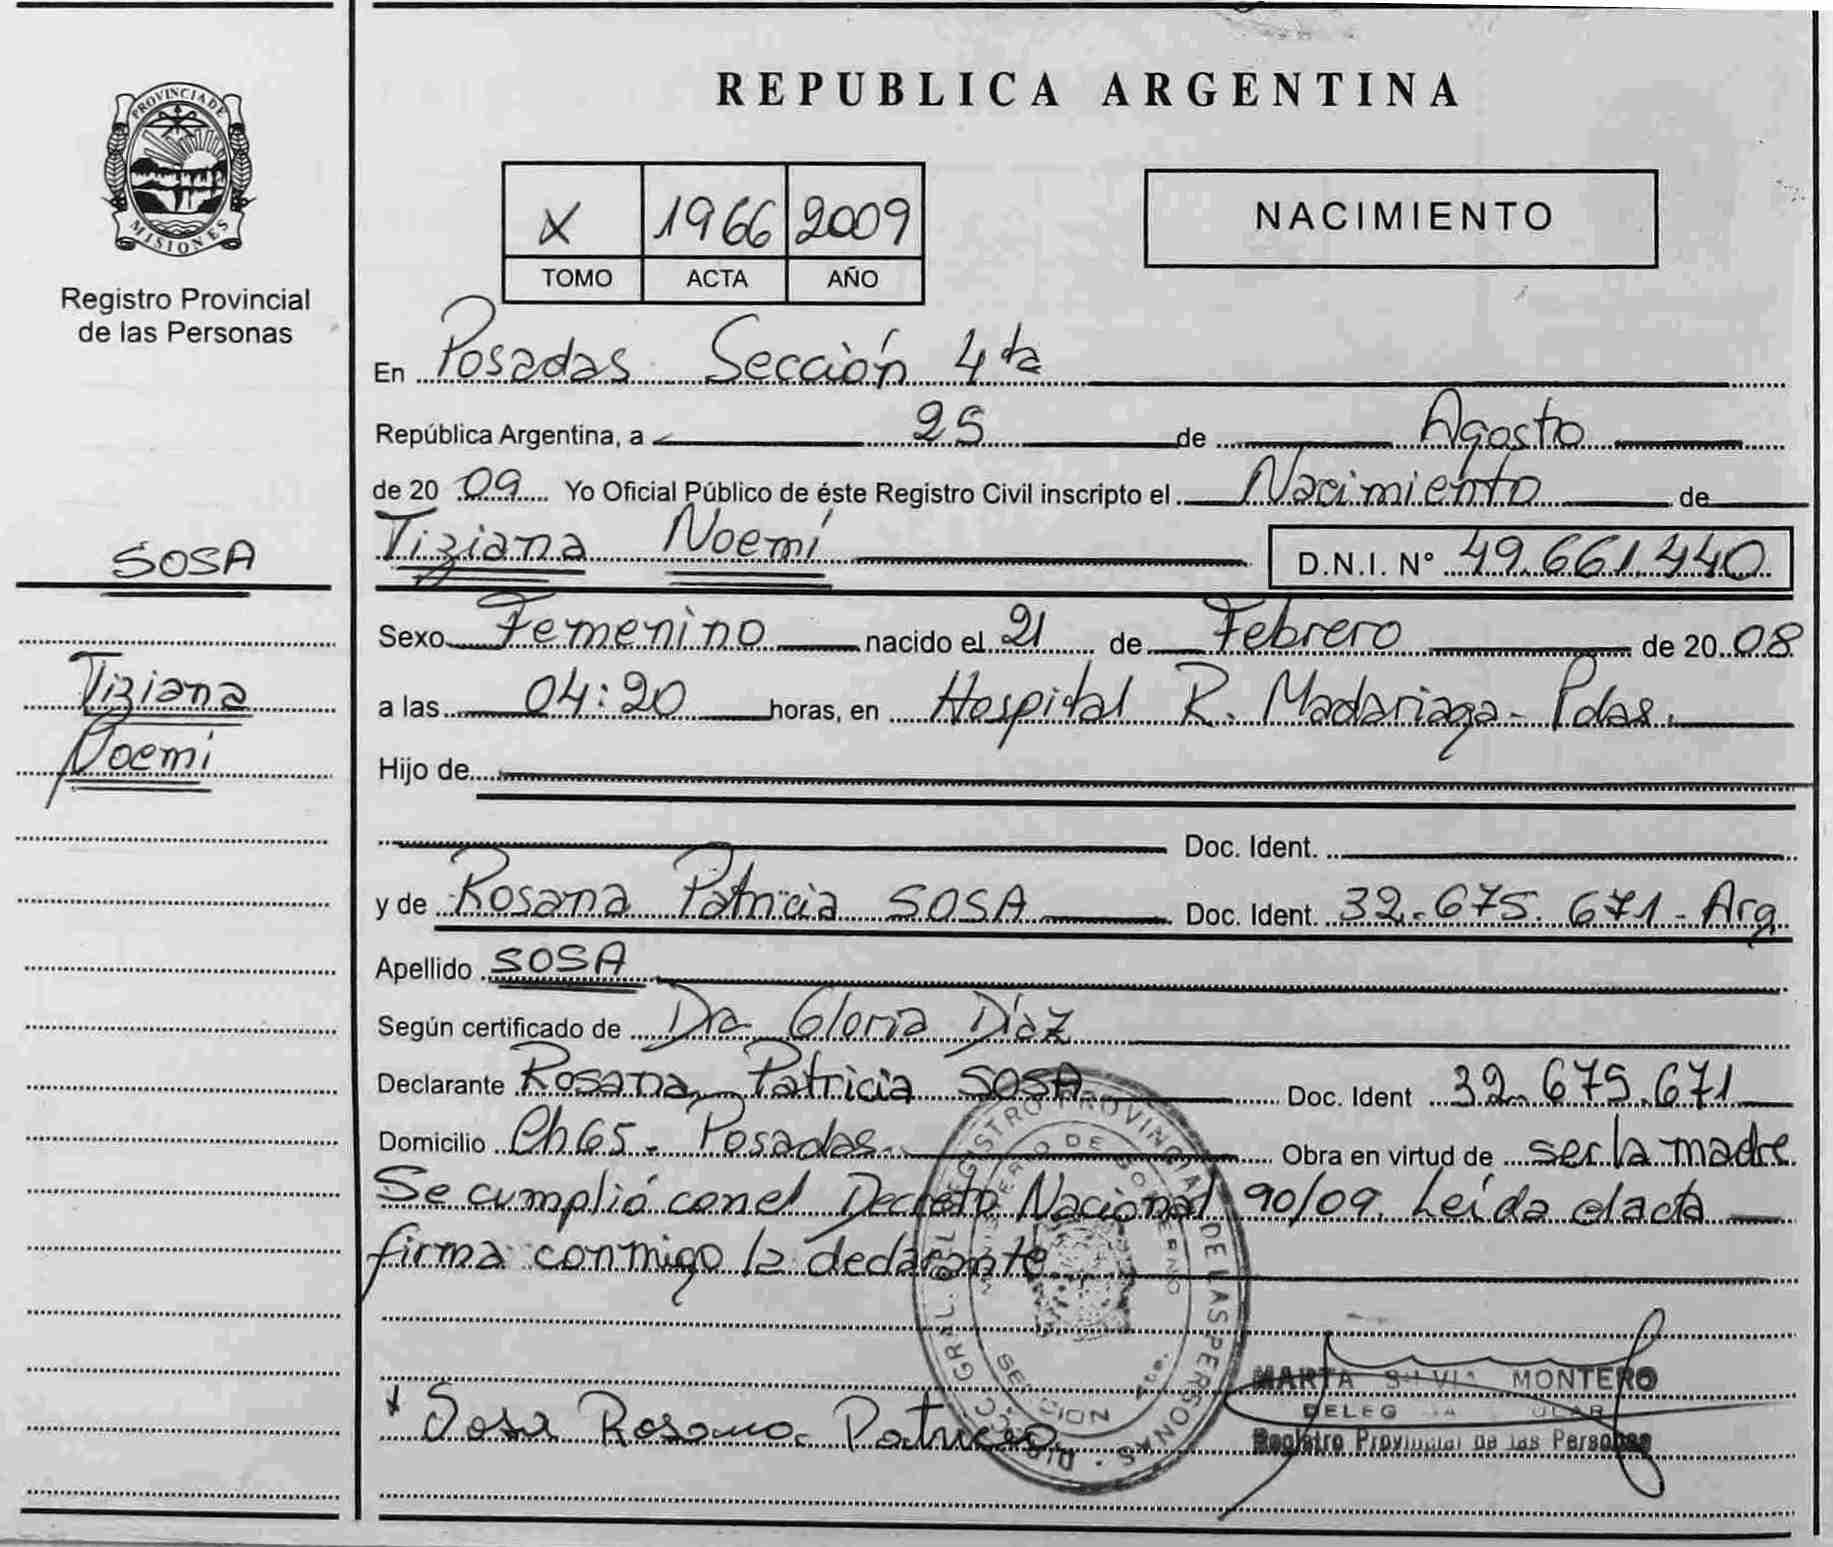 REPUBLICA ARGENTINA
PROVINCIA DE
MISIONES
Registro Provincial
de las Personas
X 1966 2009
TOMO ACTA AÑO
NACIMIENTO
En Posadas Sección 4ta
República Argentina, a 25 de Agosto
de 2009 Yo Oficial Público de éste Registro Civil inscripto el Nacimiento de
Tiziana Noemí D.N.I. N° 49.661.440
SOSA
Tiziana
Noemí
Sexo Femenino nacido el 21 de Febrero de 2008
a las 04:20 horas, en Hospital R. Madariaga - Pdas.
Hijo de
Doc. Ident.
y de Rosana Patricia SOSA Doc. Ident. 32.675.671 - Arg
Apellido SOSA
Según certificado de Dra Gloria Díaz
Declarante Rosana Patricia SOSA Doc. Ident 32.675.671
Domicilio Ch65 - Posadas Obra en virtud de ser la madre
Se cumplió con el Decreto Nacional 90/09. Leída el acta
firma conmigo la declarante
Sosa Rosana Patricia
DIRECC. GRAL. DEL REGISTRO PROVINCIAL DE LAS PERSONAS
MINISTERIO DE GOBIERNO
SECCION 4ta.
MARTA SILVIA MONTERO
Registro Provincial de las Personas